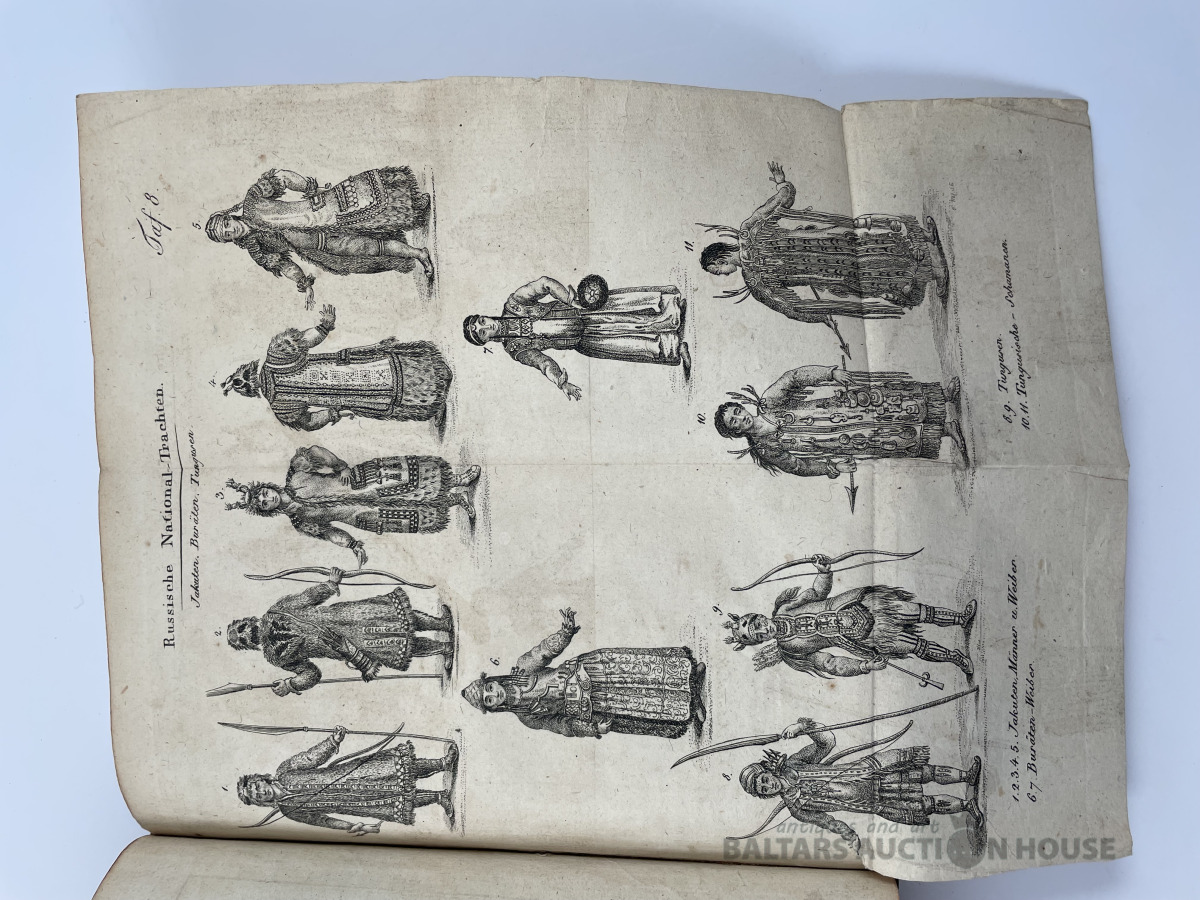 Taf. 8.
Russische National-Trachten.
Jakuten, Buräten, Tunguren.
1.
2
3.
4.
5.
6.
7.
8.
9.
10.
11.
1. 2. 3. 4. 5. Jakuten, Männer u. Weiber.
6. 7. Buräten-Weiber.
8. 9. Tunguren.
10. 11. Tungurische-Schamanen.
antiques and art
BALTARS AUCTION HOUSE